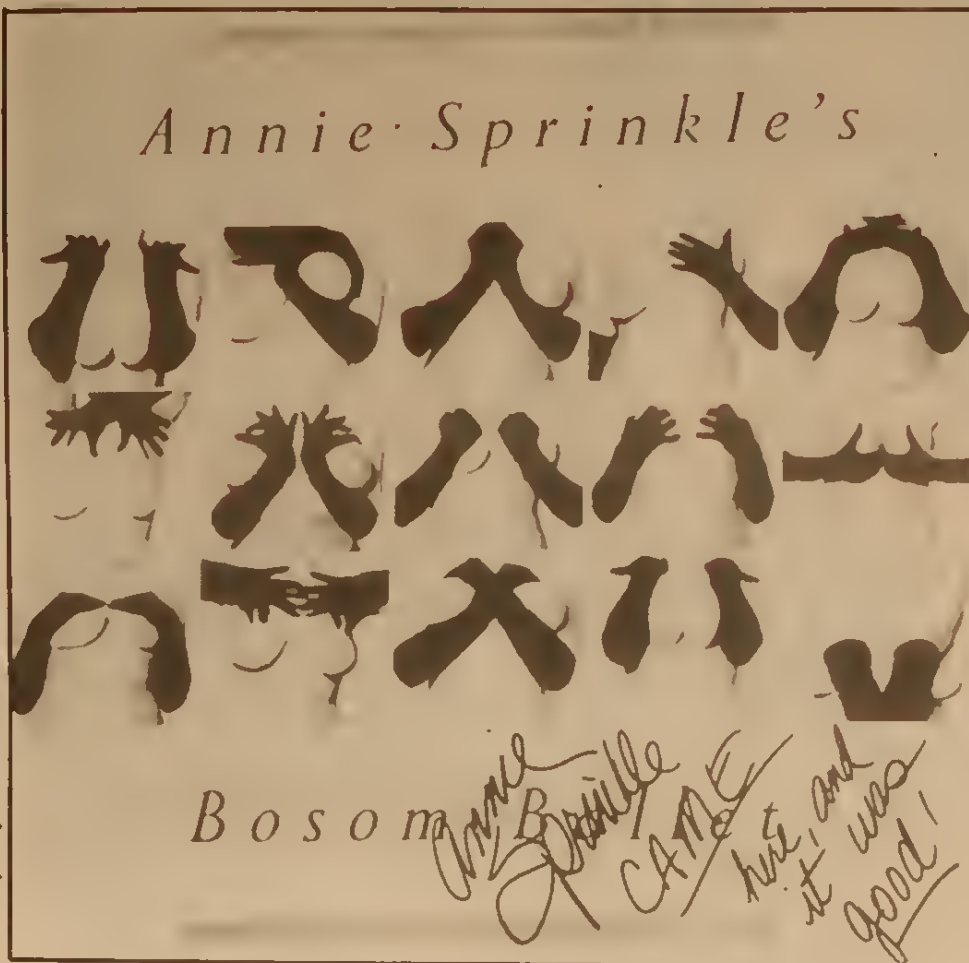 Annie Sprinkle's
Bosom Ballet
Annie
Sprinkle
CAME
here, and
it was
good!